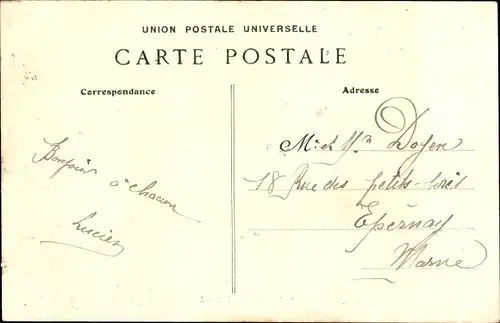 UNION POSTALE UNIVERSELLE
CARTE POSTALE
Correspondance
Adresse
Bonjour
à chacun
Lucien
M. et Mme Doyen
18 Rue des petits-prés
Épernay
Marne